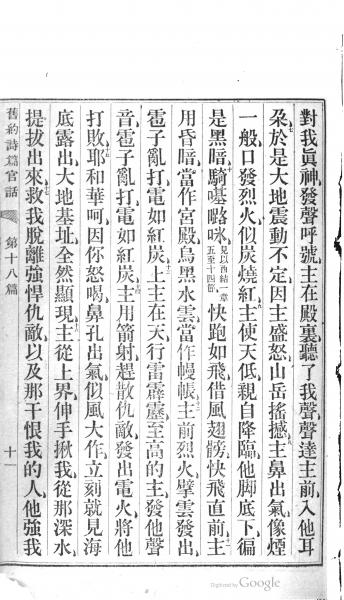 對我眞神發聲呼號主在殿裏聽了我聲聲達主前入他耳
朶於是大地震動不定因主盛怒山岳搖撼主鼻出氣像煙
一般口發烈火似炭燒紅主使天低親自降臨他脚底下徧
是黑暗騎𠼻𡀔咏見以西結一章五至十四節快跑如飛借風翅髈快飛直前主
用昏暗當作宮殿烏黑水雲當作幔帳主前烈火擘雲發出
雹子亂打電如紅炭上主在天行雷霹靂至高的主發他聲
音雹子亂打電如紅炭主用箭射趕散仇敵發出電火將他
打敗耶和華呵因你怒喝鼻孔出氣似風大作立刻就見海
底露出大地基址全然顯現主從上界伸手揪我從那深水
提拔出來救我脫離強悍仇敵以及那干恨我的人他強我
舊約詩篇官話 第十八篇 十一
Digitized by Google